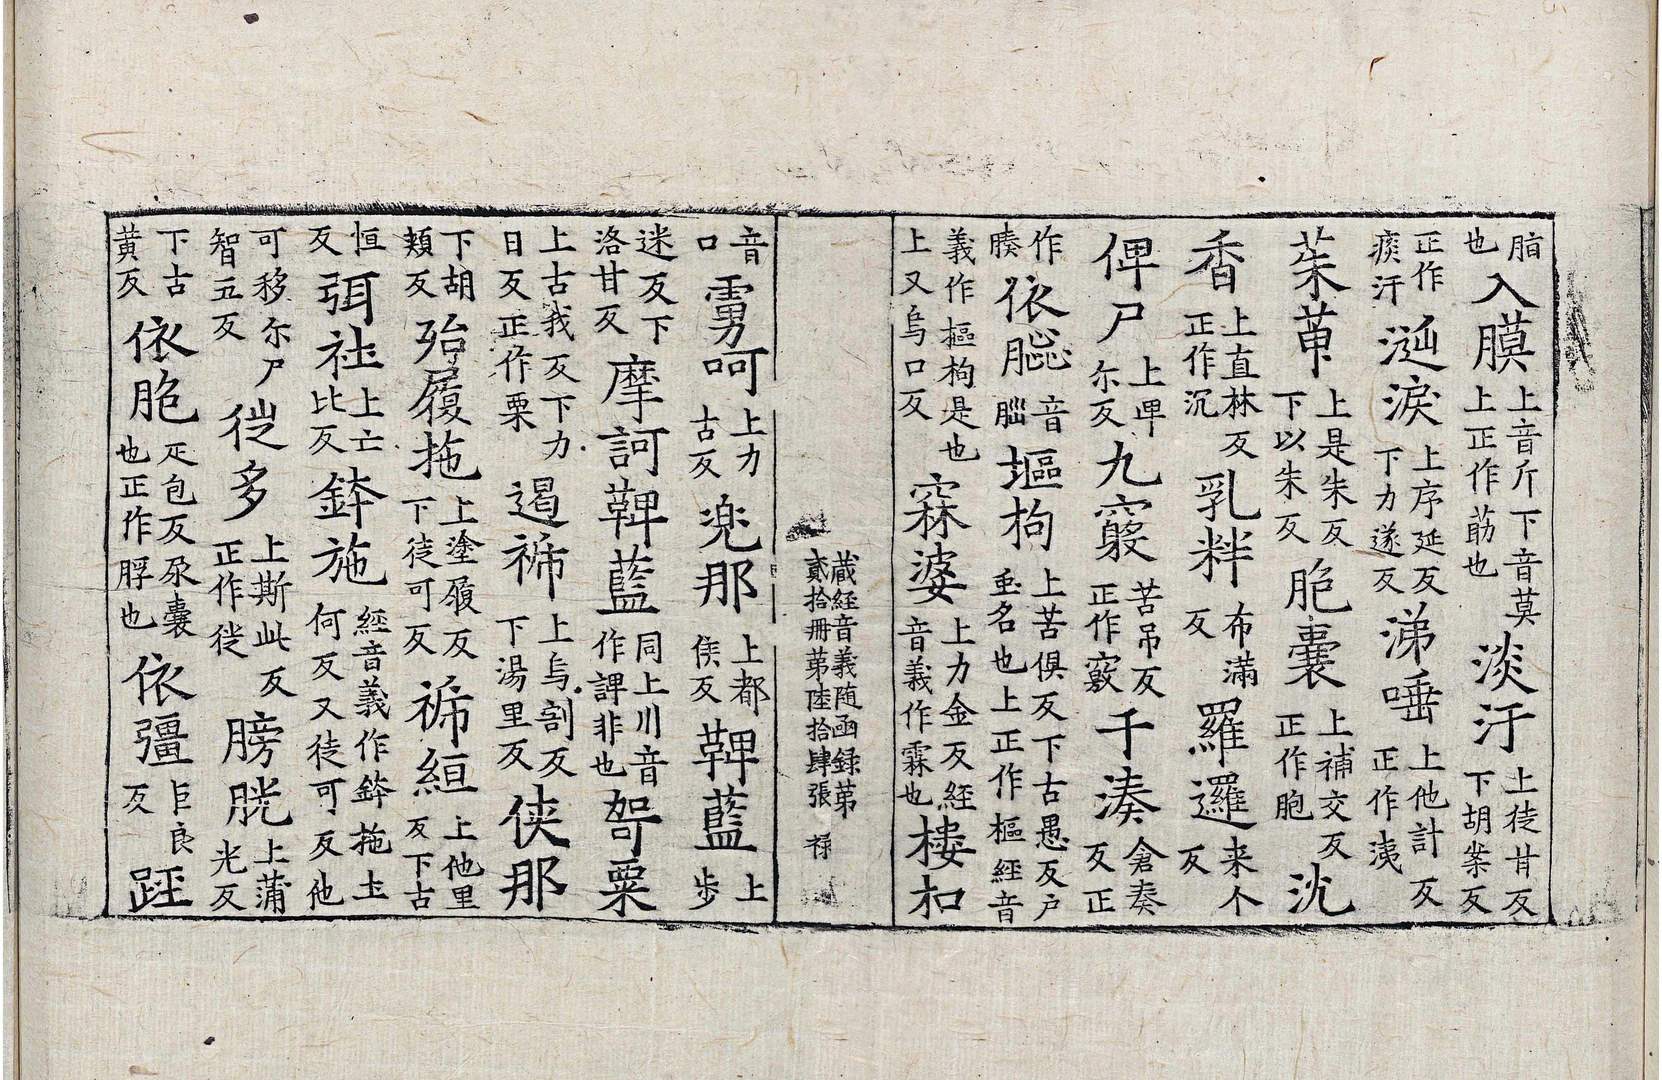 脂也入膜上音斤下音莫上正作莇也淡汙上徒甘反下胡㭉反
正作痰汗涎淚上序延反下力遂反涕唾上他計反正作洟
茱萆上是朱反下以朱反胞囊上補交反正作胞沈
香上直林反正作沉乳粹布滿反羅邏来个反
俾尸上卑尔反九竅苦吊反正作竅千湊倉奏反正
作腠依𦛁音𦛁塸枸上苦俱反下古愚反户𡋲名也上正作樞經音
義作樞枸是也㝝婆上力金反經音義作霖也樓㧃
上又烏口反
藏経音義随函録第貳拾册苐陸拾肆張 禄
音口𩂜呵上力古反兠那上都侯反鞞藍上步
迷反下洛甘反摩訶鞞藍同上川音作諀非也㚙粟
上古我反下力日反正作栗遏祢上烏割反下湯里反俠那
下胡頬反殆履拖上塗履反下徒可反祢絙上他里反下古
恒反弭社上亡比反鉢施經音義作鉢拖土何反又徒可反他
可移尔尸智五反徙多上斯此反正作徙膀胱上蒲光反
下古黄反依胞疋包反尿囊也正作脬也依彊巨良反踁